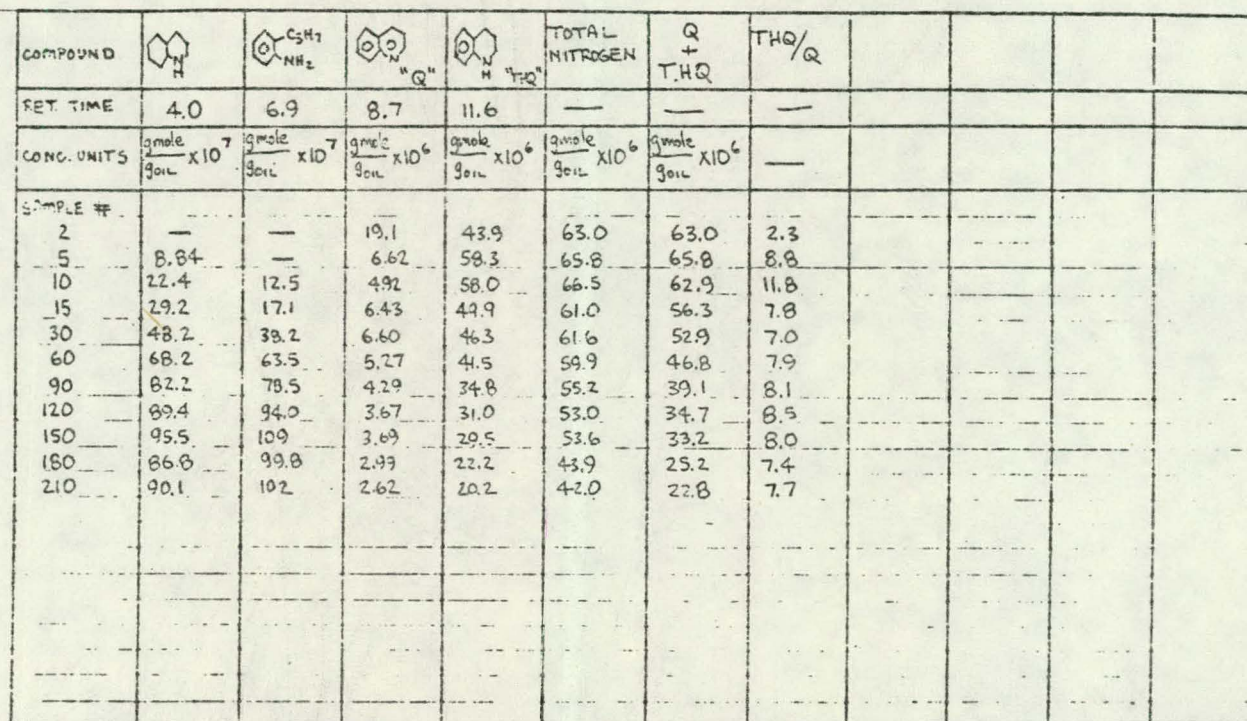 COMPOUND N H C3H7 NH2 N "Q" N H "THQ" TOTAL NITROGEN Q + T.HQ THQ/Q
RET. TIME 4.0 6.9 8.7 11.6 — — —
CONC. UNITS gmole/gOIL X10^7 gmole/gOIL X10^7 gmole/gOIL X10^6 gmole/gOIL X10^6 gmole/gOIL X10^6 gmole/gOIL X10^6 —
SAMPLE #
2 — — 19.1 43.9 63.0 63.0 2.3
5 8.84 — 6.62 58.3 65.8 65.8 8.8
10 22.4 12.5 4.92 58.0 66.5 62.9 11.8
15 29.2 17.1 6.43 49.9 61.0 56.3 7.8
30 48.2 38.2 6.60 46.3 61.6 52.9 7.0
60 68.2 63.5 5.27 41.5 59.9 46.8 7.9
90 82.2 78.5 4.29 34.8 55.2 39.1 8.1
120 89.4 94.0 3.67 31.0 53.0 34.7 8.5
150 95.5 109 3.69 29.5 53.6 33.2 8.0
180 86.8 99.8 2.99 22.2 43.9 25.2 7.4
210 90.1 102 2.62 20.2 42.0 22.8 7.7